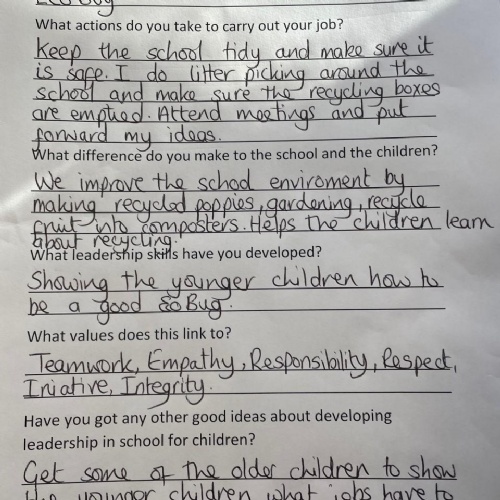 Eco Bug
What actions do you take to carry out your job?
Keep the school tidy and make sure it
is safe. I do litter picking around the
school and make sure the recycling boxes
are emptied. Attend meetings and put
forward my ideas.
What difference do you make to the school and the children?
We improve the school enviroment by
making recycled poppies, gardening, recycle
fruit into composters. Helps the children learn
about recycling.
What leadership skills have you developed?
Showing the younger children how to
be a good EcoBug.
What values does this link to?
Teamwork, Empathy, Responsibility, Respect,
Iniative, Integrity.
Have you got any other good ideas about developing
leadership in school for children?
Get some of the older children to show
the younger children what jobs have to